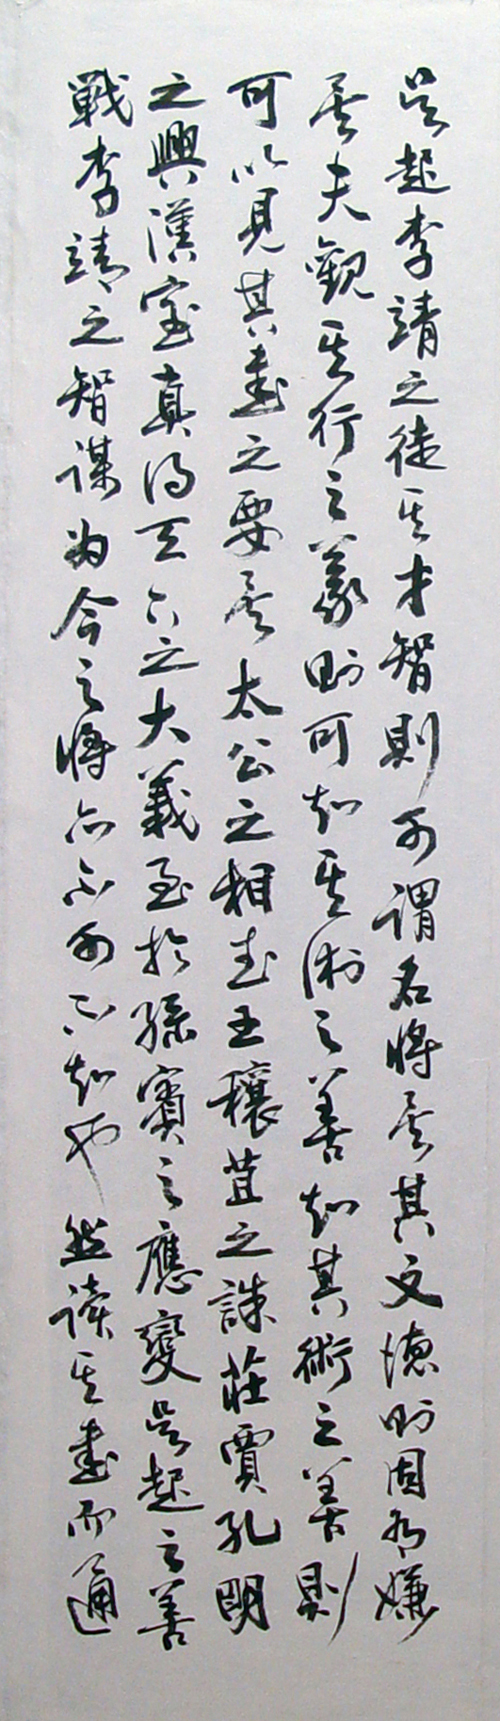 吳起李靖之徒其才智則可謂名將矣其文德則固有嫌
矣夫觀其行之義則可知其術之善知其術之善則
可以見其書之要矣太公之相武王穰苴之誅莊賈孔明
之興漢室真得天下之大義至於孫賓之應變吳起之善
戰李靖之智謀為今之將亦不可不知也然读其書而通